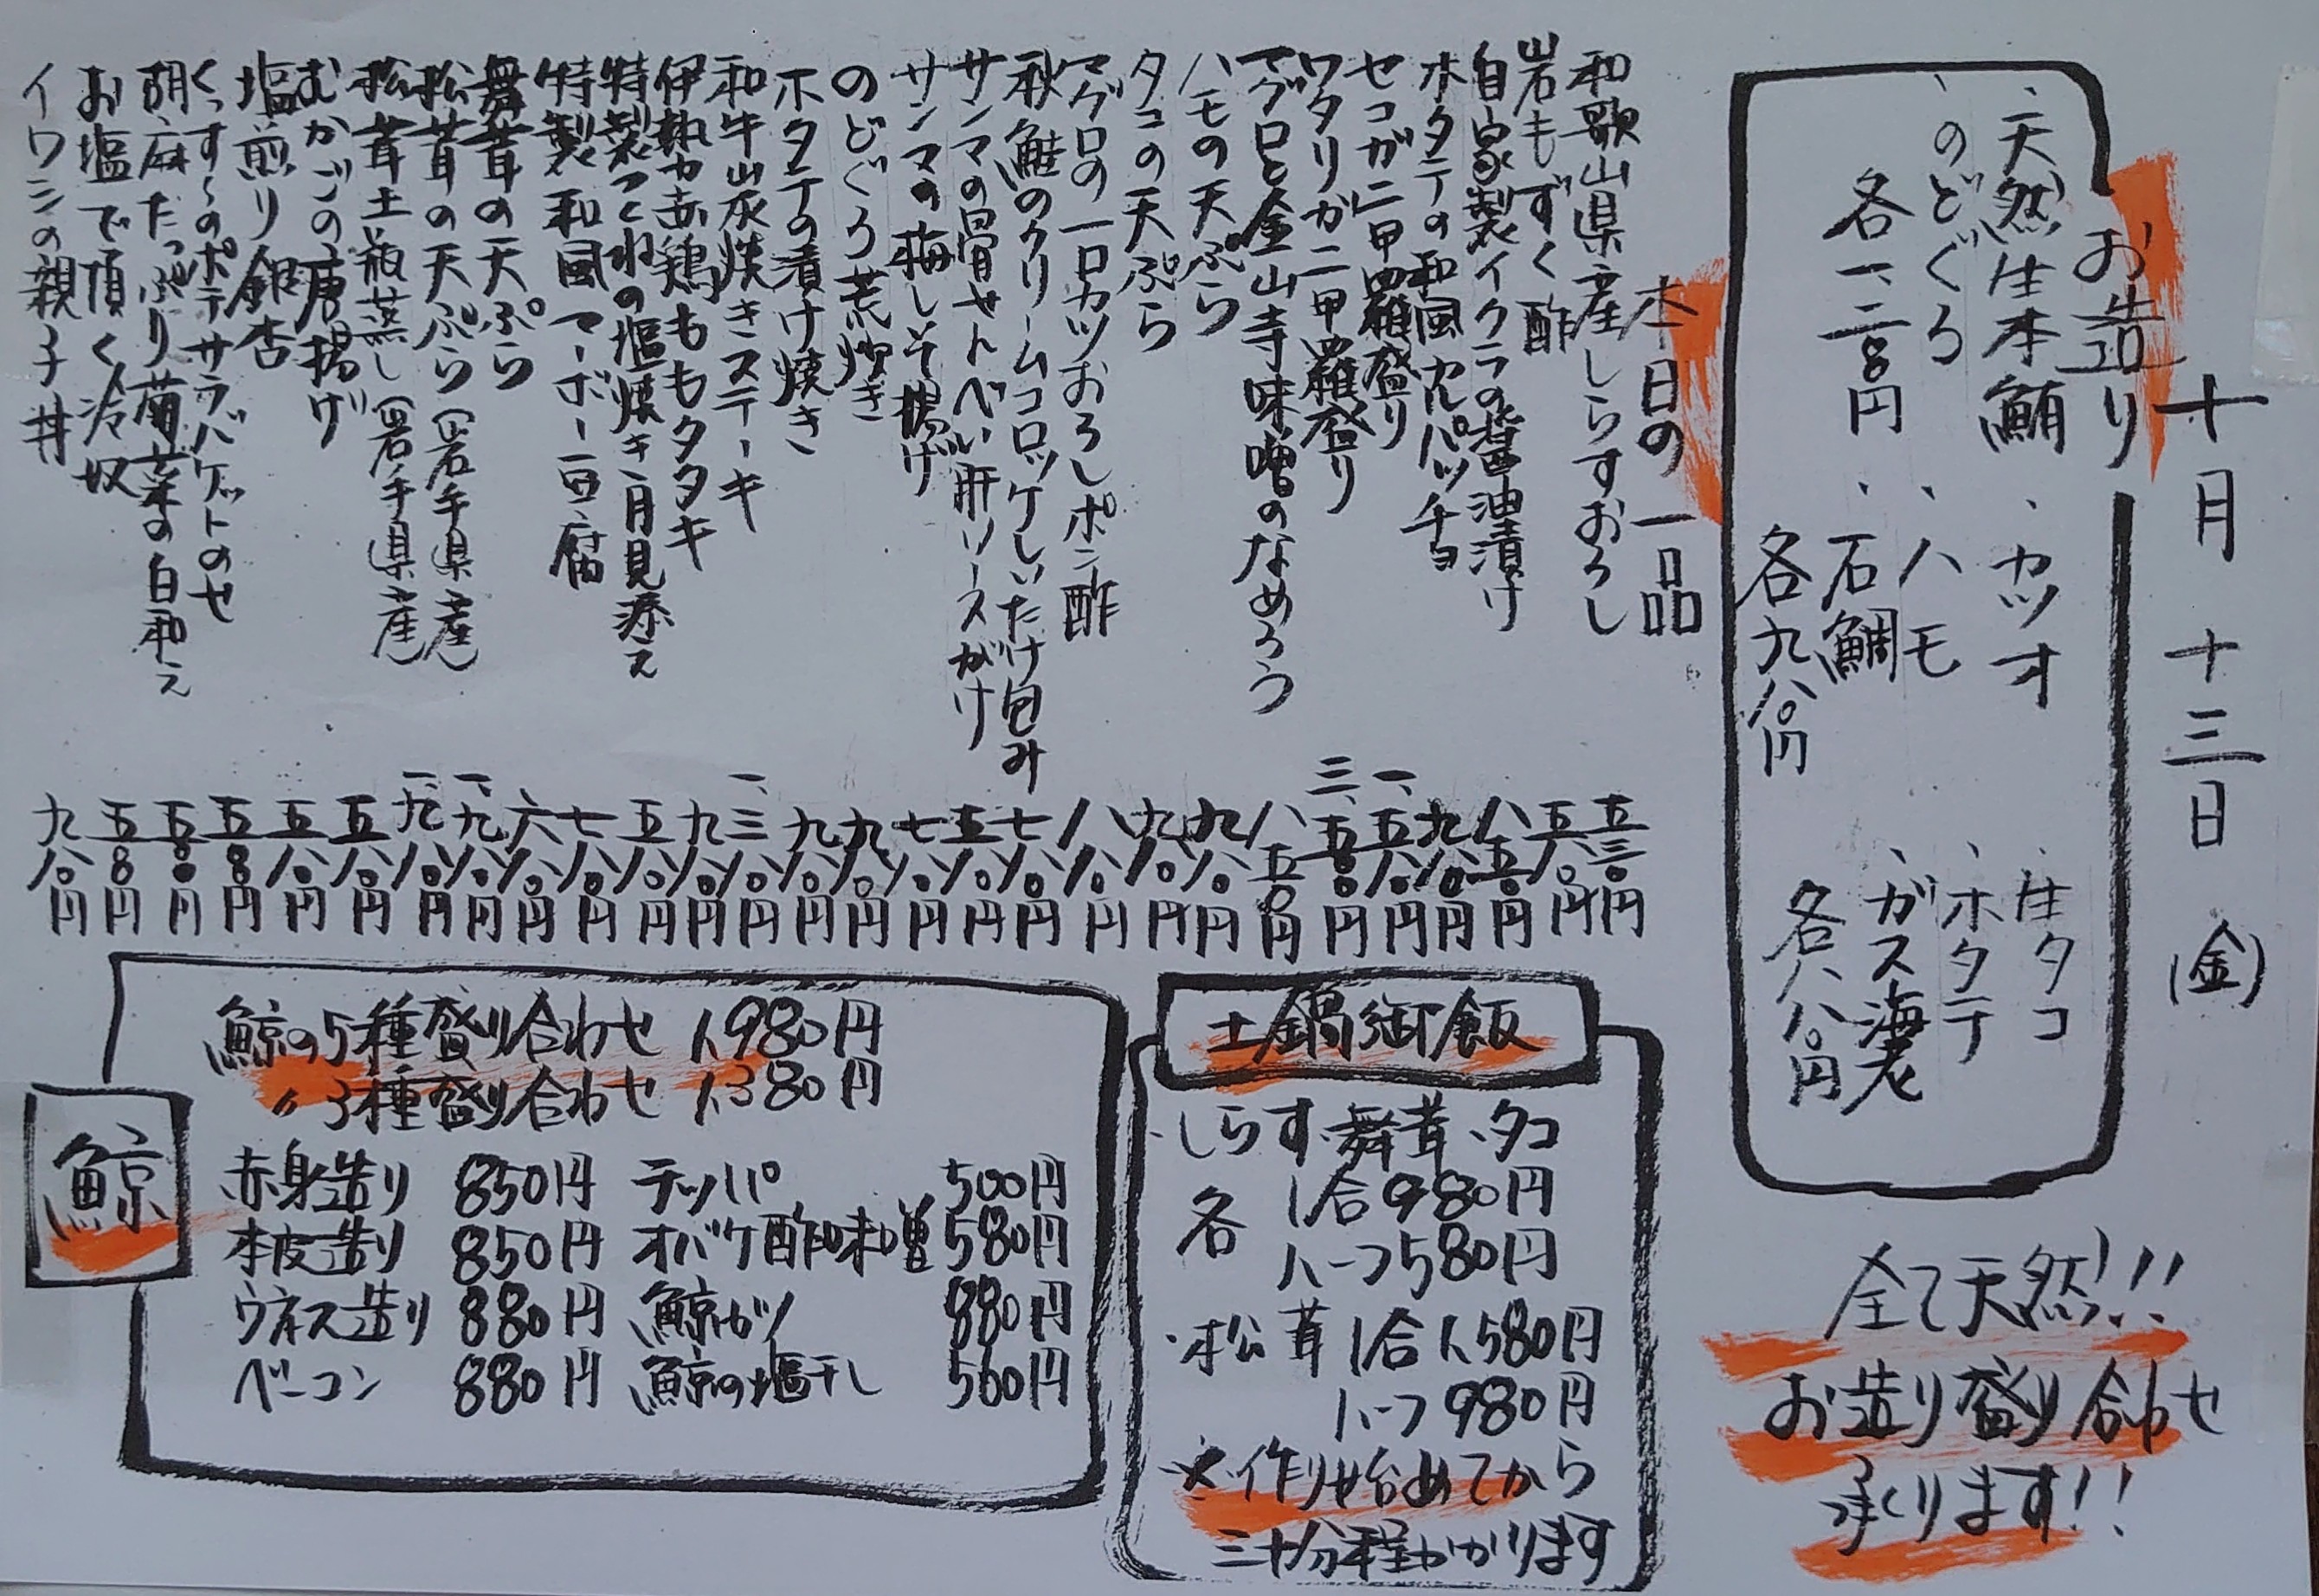 十月十三日(金)
お造り
、天然生本鮪
、のどぐろ
各一二八〇円
、カツオ
、ハモ
、石鯛
各九八〇円
、生タコ
、ホタテ
、ガス海老
各八八〇円
全て天然!!
お造り盛り合わせ
承ります!!
本日の一品
和歌山県産しらすおろし 五三〇円
岩もずく酢 五八〇円
自家製イクラの醤油漬け 八五〇円
ホタテの和風カルパッチョ 九八〇円
セコガニ甲羅盛り 一、五八〇円
ワタリガニ甲羅盛り 三、五〇〇円
マグロと金山寺味噌のなめろう 八五〇円
ハモの天ぷら 九八〇円
タコの天ぷら 九八〇円
マグロの一口カツおろしポン酢 八八〇円
秋鮭のクリームコロッケしいたけ包み 七八〇円
サンマの骨せんべい肝ソースがけ 五八〇円
サンマの梅しそ揚げ 七八〇円
のどぐろ荒炊き 九八〇円
ホタテの漬け焼き 九八〇円
和牛山灰焼きステーキ 一、三八〇円
伊勢赤鶏ももタタキ 九八〇円
特製つくねの塩焼き月見添え 五八〇円
特製和風マーボー豆腐 七八〇円
舞茸の天ぷら 六八〇円
松茸の天ぷら(岩手県産) 一、九八〇円
松茸土瓶蒸し(岩手県産) 一、九八〇円
むかごの唐揚げ 五八〇円
塩煎り銀杏 五八〇円
くっすぅのポテサラバケットのせ 五八〇円
胡麻たっぷり菊菜の白和え 五八〇円
お塩で頂く冷奴 五八〇円
イワシの親子丼 九八〇円
土鍋御飯
・しらす・舞茸・タコ
各 1合980円
ハーフ580円
・松茸 1合1,580円
ハーフ980円
※作り始めてから
三十分程かかります
鯨
鯨の5種盛り合わせ 1,980円
〃3種盛り合わせ 1,380円
赤身造り 850円
本皮造り 850円
ウネス造り 880円
ベーコン 880円
テッパ 500円
オバケ酢味噌 580円
鯨カツ 880円
鯨の塩干し 560円